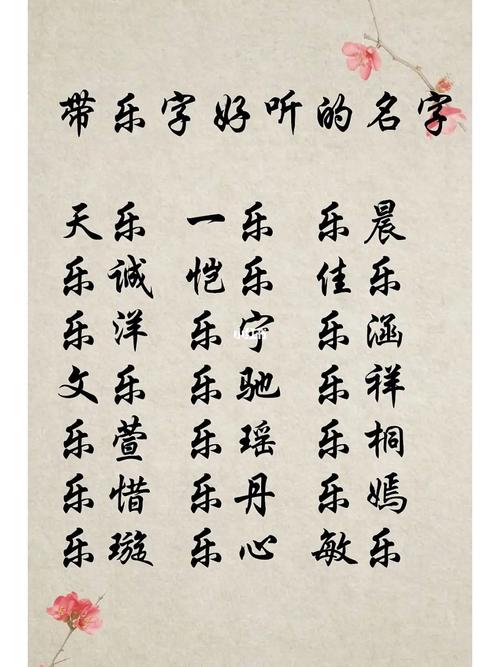 带乐字好听的名字
天乐 一乐 乐晨
乐诚 恺乐 佳乐
乐洋 乐宁 乐涵
文乐 乐驰 乐祥
乐萱 乐瑶 乐桐
乐惜 乐丹 乐嫣
乐璇 乐心 敏乐